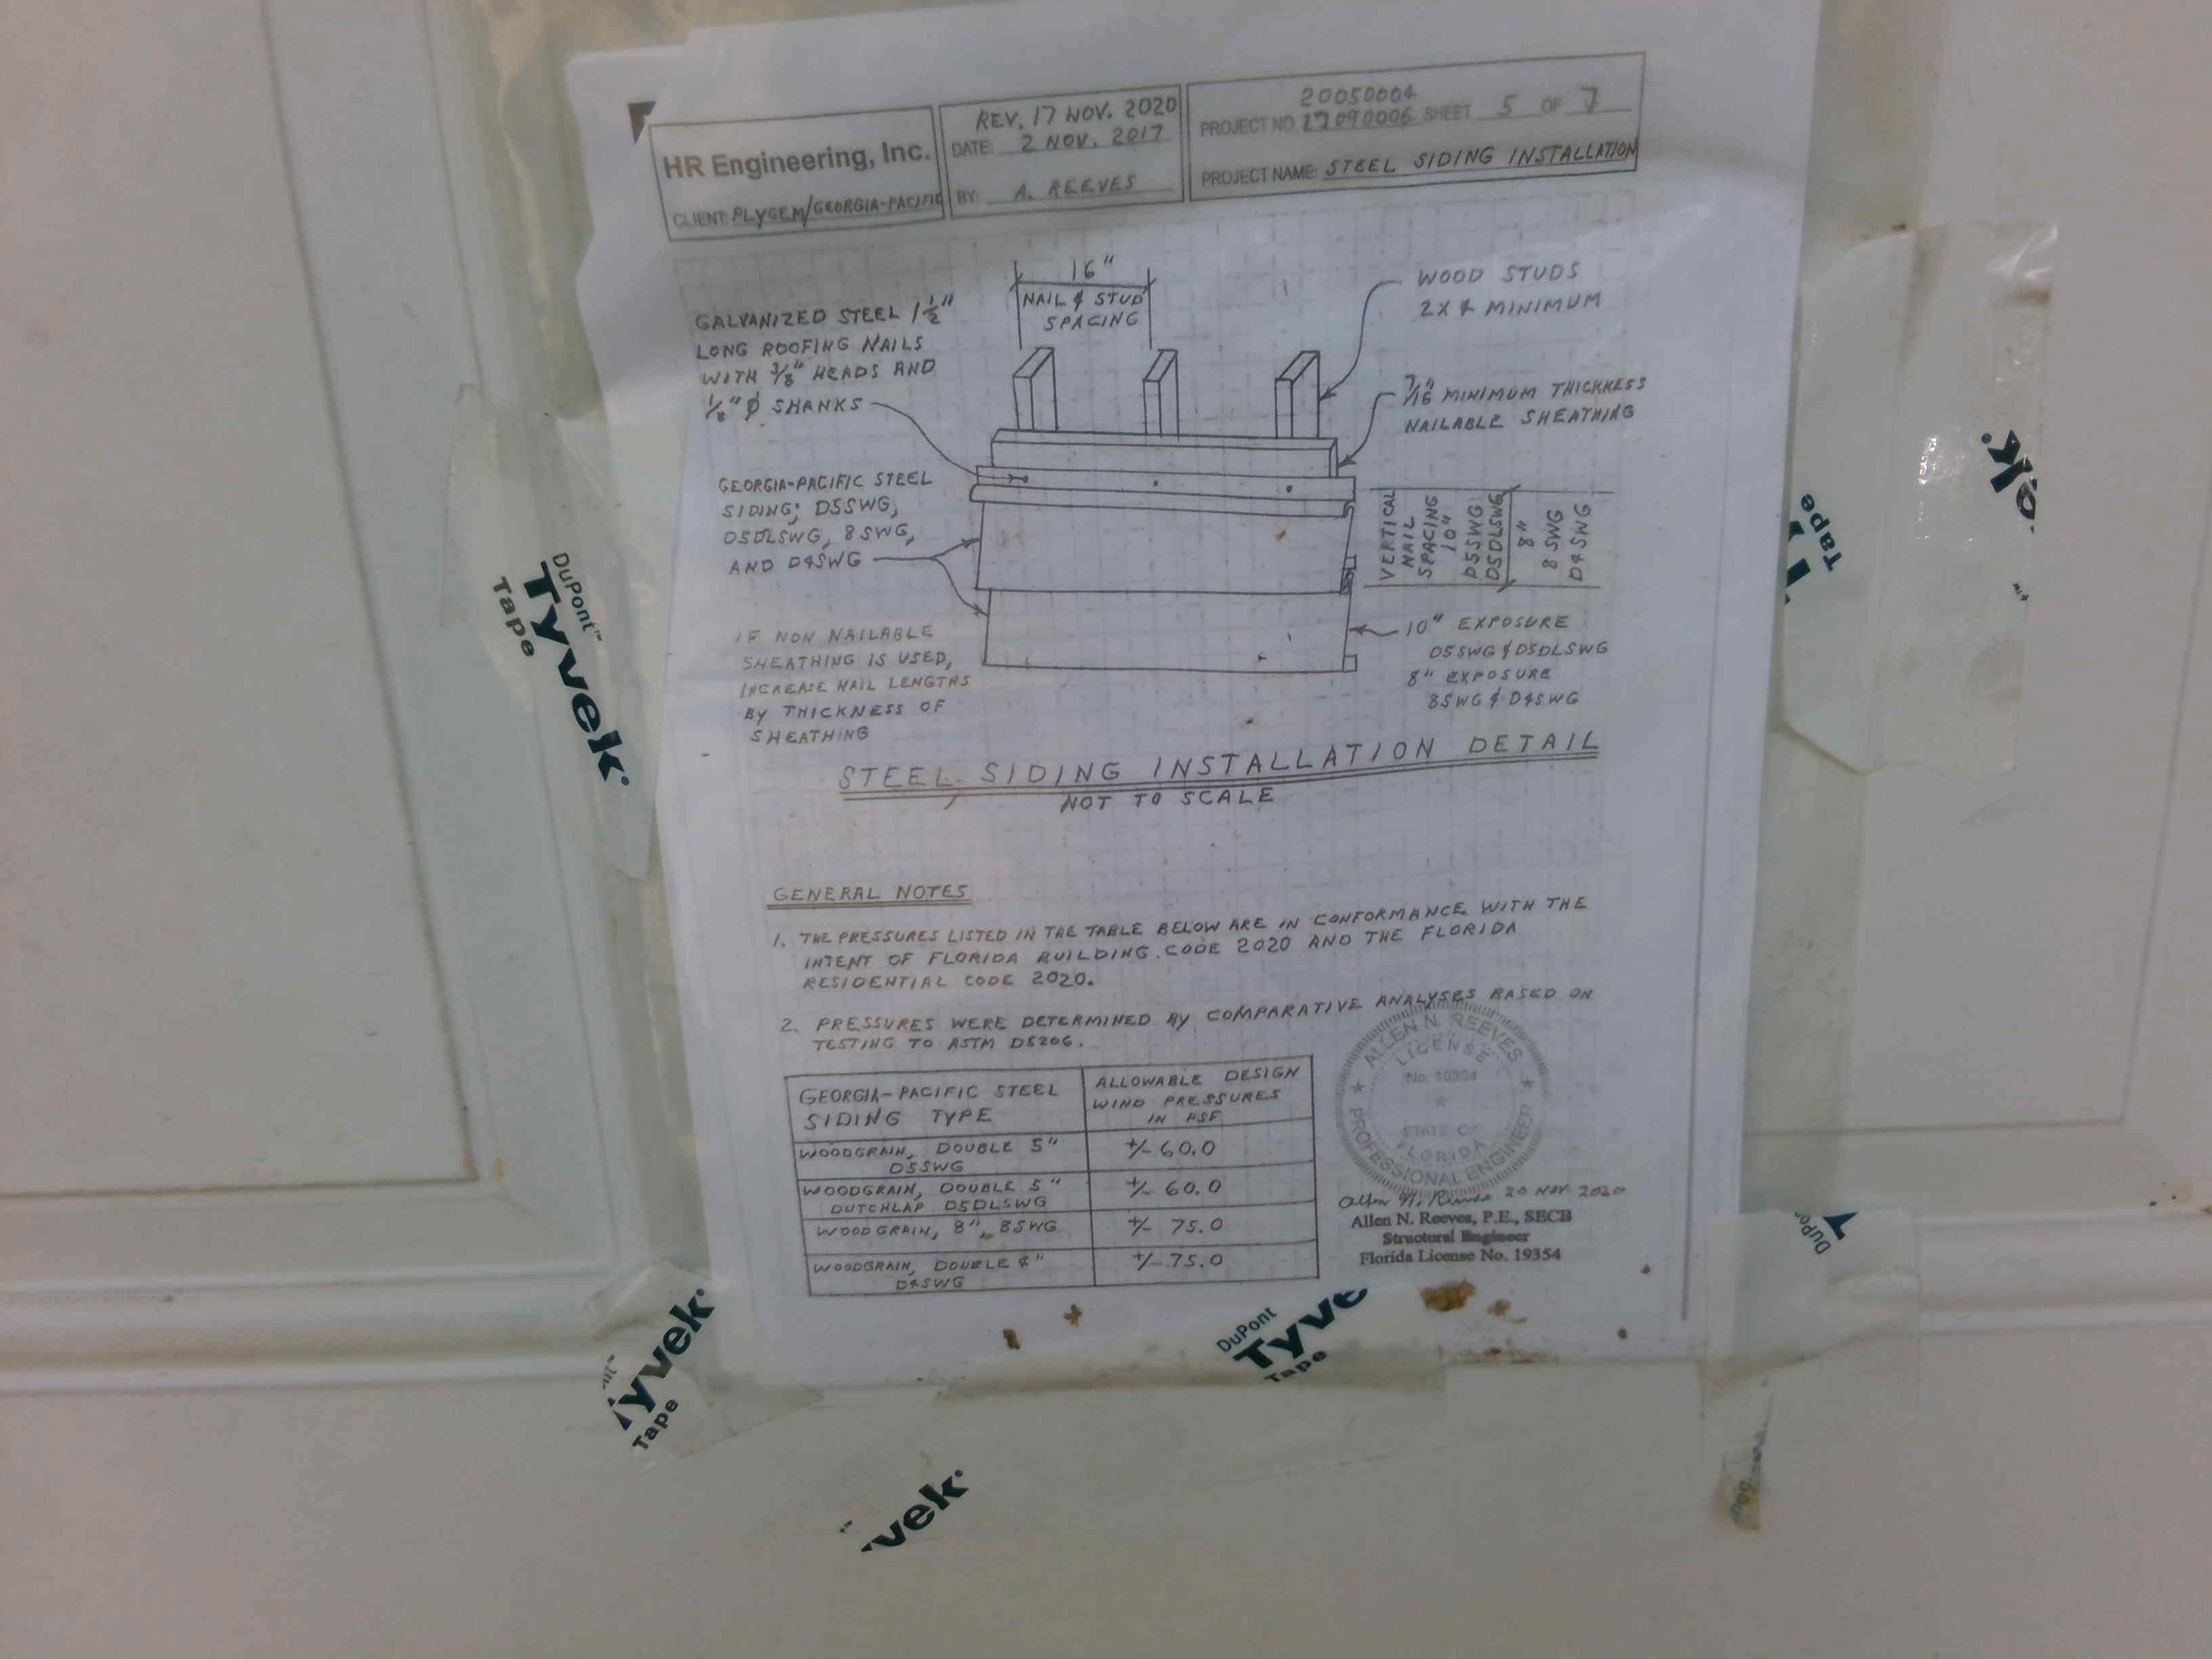 HR Engineering, Inc.
CLIENT: PLYGEM/GEORGIA-PACIFIC
REV. 17 NOV. 2020
DATE: 2 NOV. 2017
BY: A. REEVES
20050004
PROJECT NO. 17090006 SHEET 5 OF 7
PROJECT NAME: STEEL SIDING INSTALLATION
16"
NAIL & STUD
SPACING
WOOD STUDS
2X4 MINIMUM
GALVANIZED STEEL 1 1/2"
LONG ROOFING NAILS
WITH 3/8" HEADS AND
1/8" ϕ SHANKS
7/16" MINIMUM THICKNESS
NAILABLE SHEATHING
GEORGIA-PACIFIC STEEL
SIDING; D5SWG,
D5DLSWG, 8SWG,
AND D4SWG
VERTICAL
NAIL
SPACING
10"
D5SWG
D5DLSWG
8"
8SWG
D4SWG
IF NON NAILABLE
SHEATHING IS USED,
INCREASE NAIL LENGTHS
BY THICKNESS OF
SHEATHING
10" EXPOSURE
D5SWG & D5DLSWG
8" EXPOSURE
8SWG & D4SWG
STEEL SIDING INSTALLATION DETAIL
NOT TO SCALE
GENERAL NOTES
1. THE PRESSURES LISTED IN THE TABLE BELOW ARE IN CONFORMANCE WITH THE
INTENT OF FLORIDA BUILDING CODE 2020 AND THE FLORIDA
RESIDENTIAL CODE 2020.
2. PRESSURES WERE DETERMINED BY COMPARATIVE ANALYSES BASED ON
TESTING TO ASTM D5206.
GEORGIA-PACIFIC STEEL
SIDING TYPE
ALLOWABLE DESIGN
WIND PRESSURES
IN PSF
WOODGRAIN, DOUBLE 5"
D5SWG
+/- 60.0
WOODGRAIN, DOUBLE 5"
DUTCHLAP D5DLSWG
+/- 60.0
WOODGRAIN, 8", 8SWG
+/- 75.0
WOODGRAIN, DOUBLE 4"
D4SWG
+/- 75.0
ALLEN N. REEVES
LICENSE
No. 19354
STATE OF
FLORIDA
PROFESSIONAL ENGINEER
Allen N. Reeves 20 NOV 2020
Allen N. Reeves, P.E., SECB
Structural Engineer
Florida License No. 19354
DuPont™
Tyvek®
Tape
Tape
DuPont
Tyvek®
Tape
DuPont
Tyvek
Tape
vek®